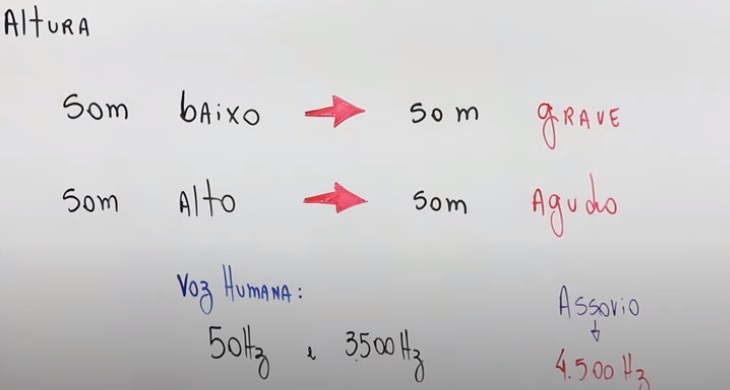 Altura
Som baixo → Som grave
Som Alto → Som Agudo
Voz Humana:
50Hz e 3.500Hz
Assovio
↓
4.500 Hz